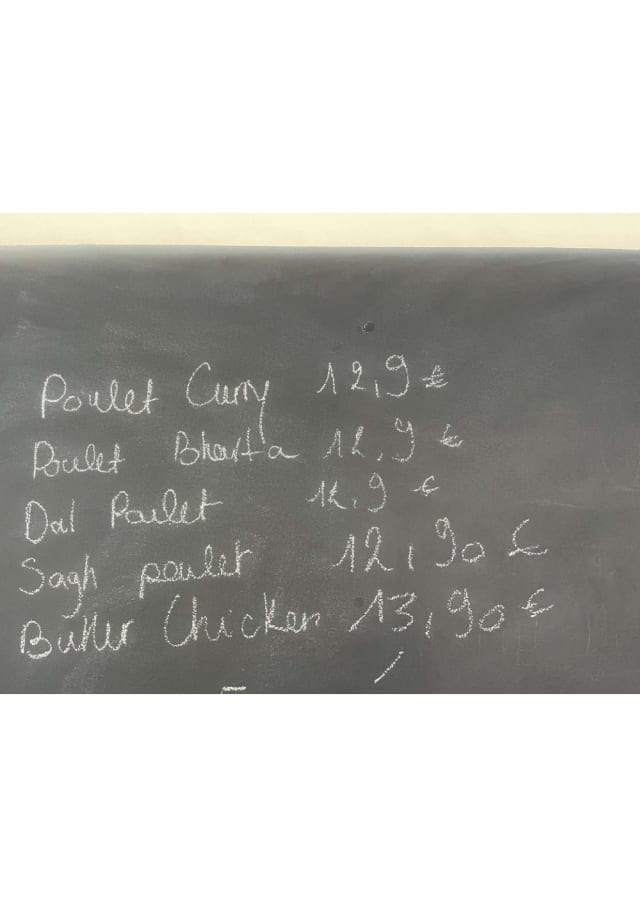 Poulet Curry 12,9 €
Poulet Bharta 12,9 €
Dal Poulet 12,9 €
Sagh poulet 12,90 €
Butter Chicken 13,90 €